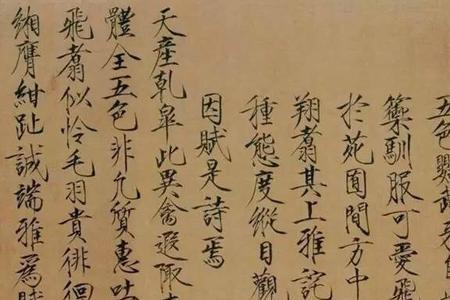 五色鸚鵡來自
籞馴服可愛飛
於苑囿間方中
翔翥其上雅詫
種態度縱目觀
因賦是詩焉
天產乾皐此異禽遐陬
體全五色非凡質惠吐
飛翥似憐毛羽貴徘徊
緗膺紺趾誠端雅爲賦